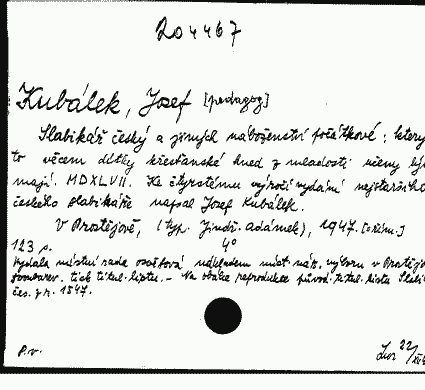 204467
Kubálek, Josef [pedagog]
Slabikář český a jiných náboženství počátkové: kterým
to věcem dítky křesťanské hned z mladosti učeny býti
mají. MDXLVII. Ke čtyrstému výročí vydání nejstaršího
českého slabikáře napsal Josef Kubálek.
V Prostějově, (typ. Jindř. Adámek), 1947. [
123 s. 4°
Vydala místní rada osvětová nákladem míst. nár. výboru v Prostějo
tisk titul. listu. - Na obálce reprodukce původ. titul. listu Slabi
čes. z r. 1547.
P.v.
22/XII